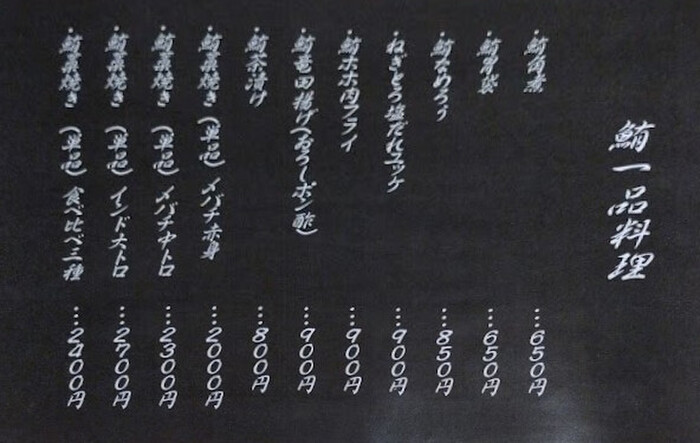 鮪一品料理
・鮪角煮 …650円
・鮪胃袋 …650円
・鮪なめろう …850円
・ねぎとろ塩だれユッケ …900円
・鮪ホホ肉フライ …900円
・鮪竜田揚げ(おろしポン酢) …900円
・鮪茶漬け …800円
・鮪藁焼き(単品)メバチ赤身 …2000円
・鮪藁焼き(単品)メバチ中トロ …2300円
・鮪藁焼き(単品)インド大トロ …2700円
・鮪藁焼き(単品)食べ比べ三種 …2400円